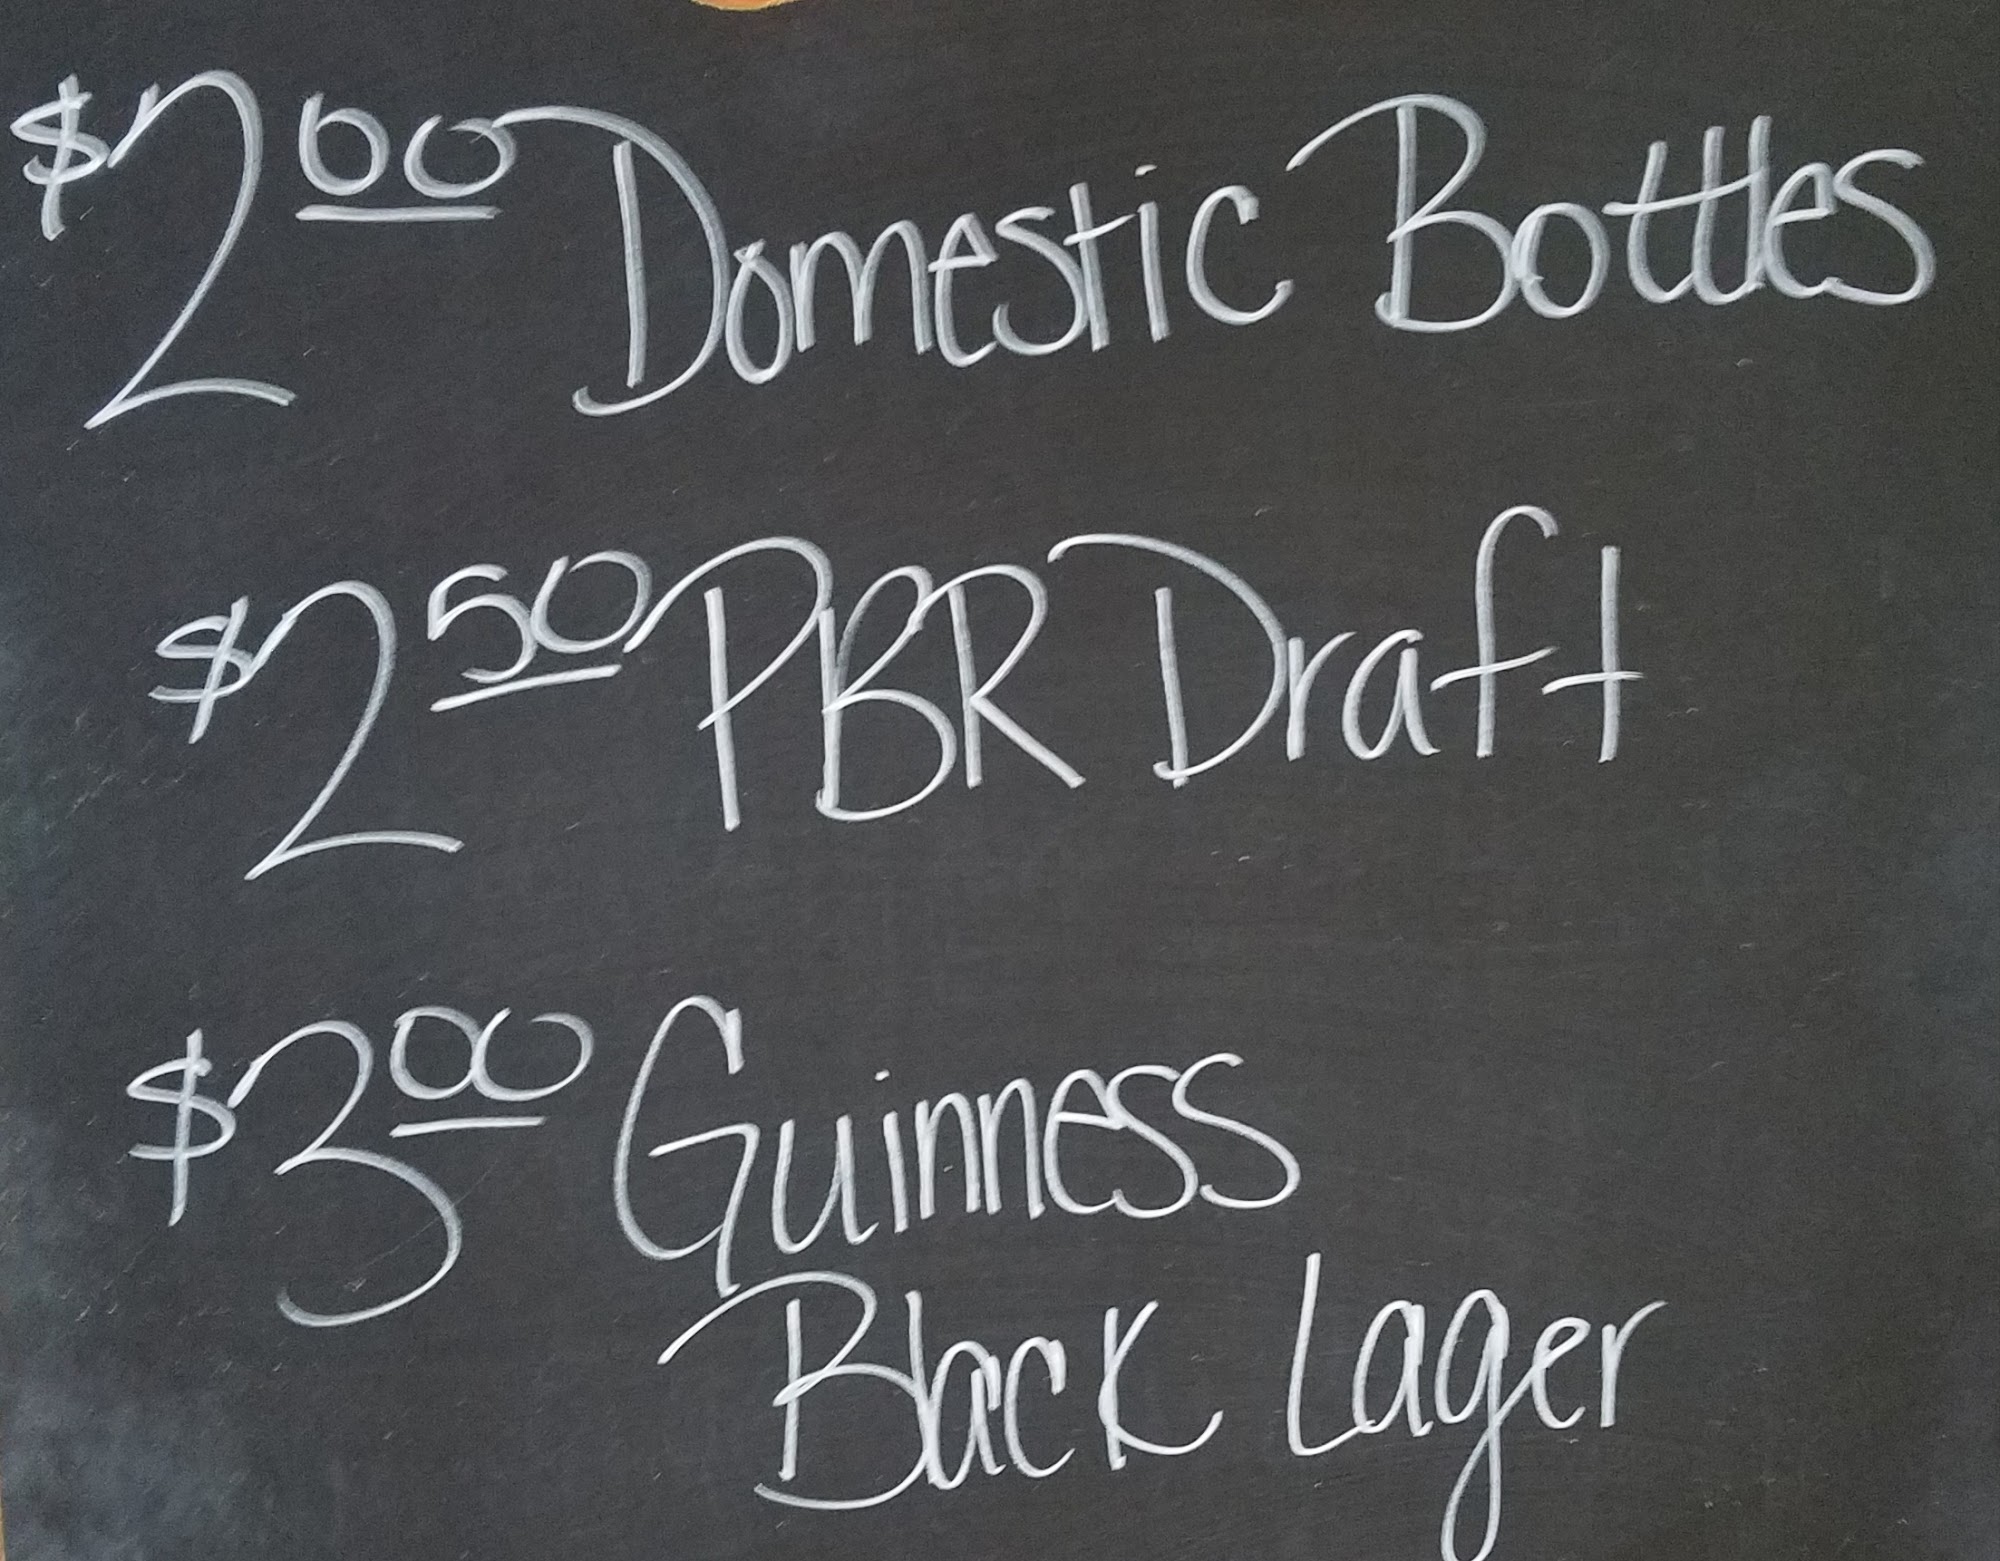 $2.00 Domestic Bottles
$2.50 PBR Draft
$3.00 Guinness
Black Lager